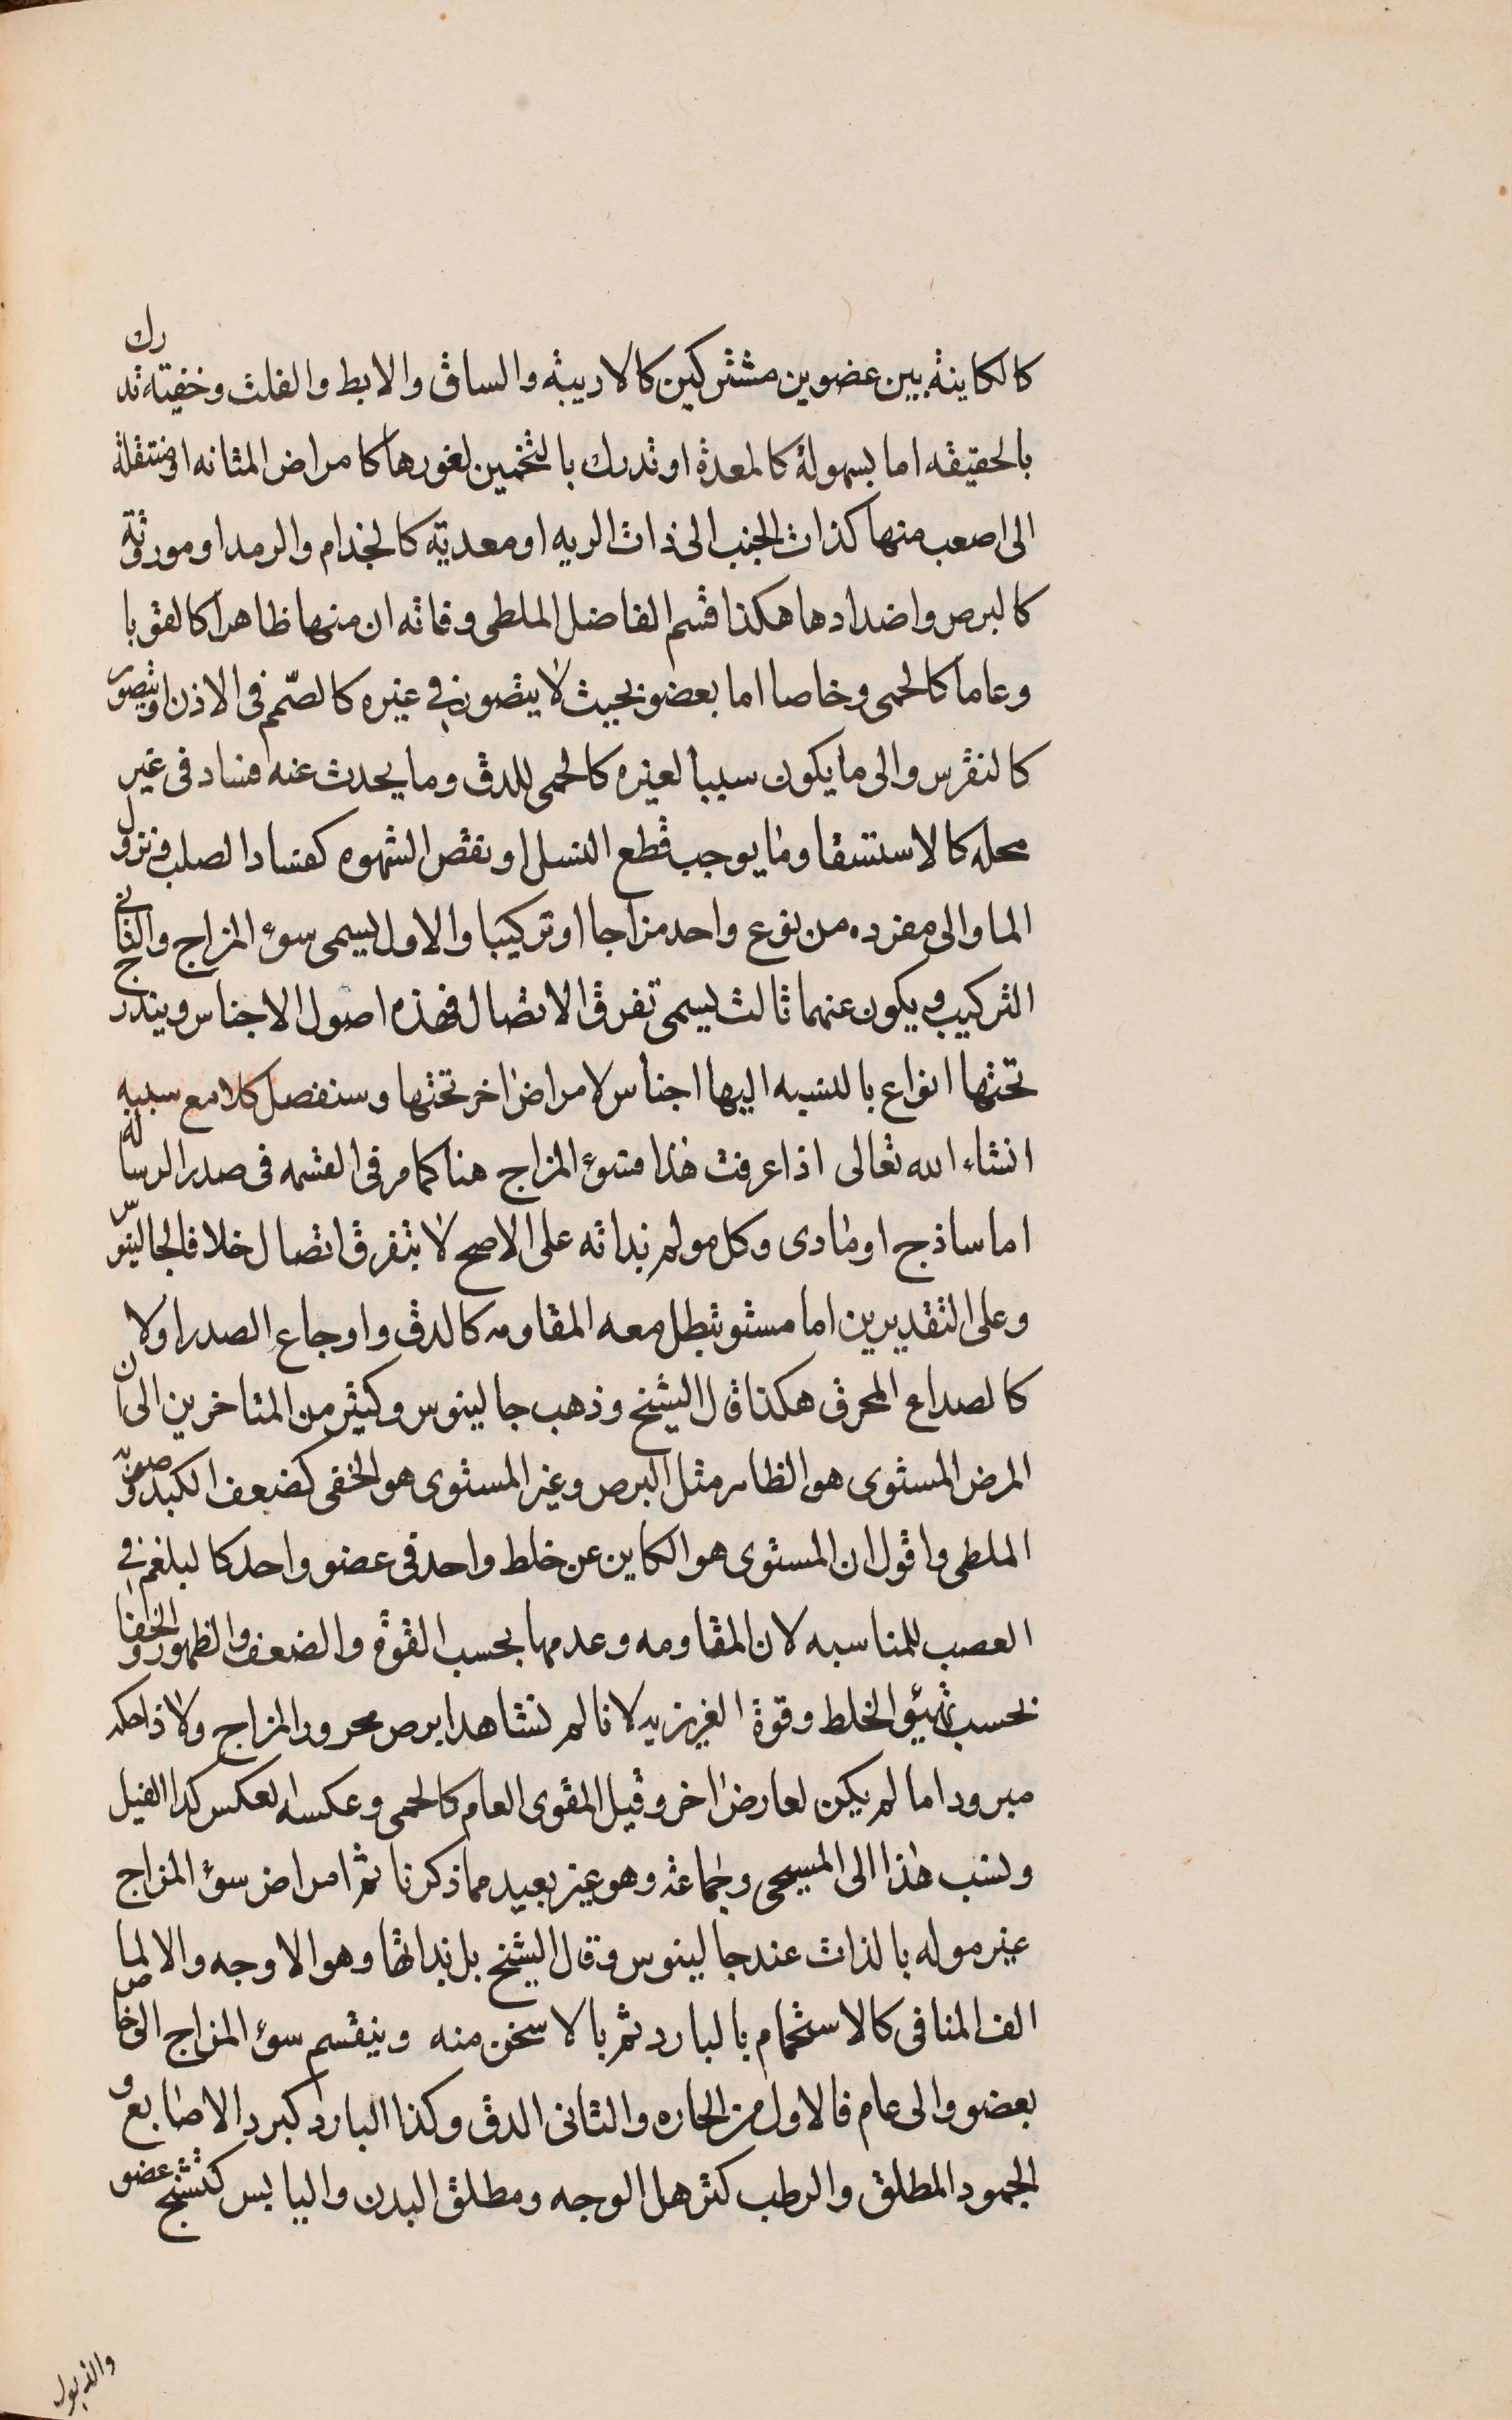 كالكاينة بين عضوين مشتركين كالاربيبة والساق والابط والفلت وخفيته تدرك
بالحقيقه اما بسهولة كالمعدة او تدرك بالتخمين لغورها كامراض المثانه او منتقلة
الى اصعب منها كذات الجنب الى ذات الريه او معديته كالجذام والرمد او موروثة
كالبرص واضدادها هكذا قسم الفاضل الملطى وفاته ان منها ظاهرا كالقوبا
وعاما كالحمى وخاصا اما بعضو بحيث لا يتصور في غيره كالصمم فى الاذن او يتصور
كالنقرس والى ما يكون سببا لغيره كالحمى للدق وما يحدث عنه فساد فى غير
محله كالاستسقا وما يوجب قطع النسل او نقص الشهوه كفساد الصلب ونزول
الما والى مفرده من نوع واحد مزاجا او تركيبا والاول يسمى سوء المزاج والثانى
التركيب ويكون عنهما ثالث يسمى تفرق الاتصال فهذه اصول الاجناس ويندرج
تحتها انواع بالنسبه اليها اجناس لامراض اخر تحتها وسنفصل كلا مع سببه
انشاء الله تعالى اذا عرفت هذا فسوء المزاج هنا كما مر فى القسمه فى صدر الرساله
اما ساذج او مادى وكل مولم بذاته على الاصح لا بتفرق اتصال خلافا لجالينوس
وعلى التقديرين اما مستو تبطل معه المقاومه كالدق واوجاع الصدر اولا
كالصداع المحرق هكذا قال الشيخ وذهب جالينوس وكثير من المتاخرين الى ان
المرض المستوى هو الظاهر مثل البرص وغير المستوى هو الخفى كضعف الكبد وصوبه
الملطى واقول ان المستوى هو الكاين عن خلط واحد فى عضو واحد كالبلغم في
العصب للمناسبه لان المقاومه وعدمها بحسب القوة والضعف والظهور والخفا
بحسب تهيؤ الخلط وقوة الغريزيه لانا لم نشاهد ابرص محرور المزاج ولا ذا حكه
مبرودا ما لم يكن لعارض اخر وقيل المقوى العام كالحمى وعكسه لعكس كدا الفيل
ونسب هذا الى المسيحى وجماعة وهو غير بعيد مما ذكرنا ثم امراض سوء المزاج
غير موله بالذات عند جالينوس وقال الشيخ بل بذاتها وهو الاوجه والا لما
الف المنافى كالاستحمام بالبارد ثم بالاسخن منه وينقسم سوء المزاج الى خاص
بعضو والى عام فالاول من الحاره والثانى الدق وكذا البارد كبرد الاصابع و
الجمود المطلق والرطب كترهل الوجه ومطلق البدن واليابس كتشنج عضو
والذبول